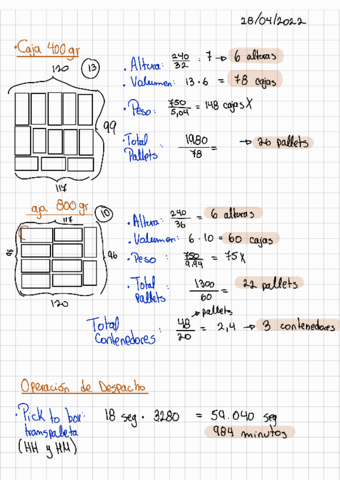 28/04/2022
• Caja 400 gr
120
13
99
117
• Altura: 240/32 : 7 → 6 alturas
• Volumen: 13 · 6 = 78 cajas
• Peso: 750/5,04 = 148 cajas X
• Total Pallets 1980/78 = → 26 pallets
aja 800 gr
10
117
96
96
120
• Altura: 240/36 = 6 alturas
• Volumen: 6 · 10 = 60 cajas
• Peso : 750/9,94 = 75 X
• Total Pallets : 1300/60 = 22 pallets
pallets
Total Contenedores : 48/20 = 2,4 → 3 contenedores
Operación de Despacho
• Pick to box: 18 seg · 3280 = 59.040 seg
transpaleta 984 minutos
(HH y HM)